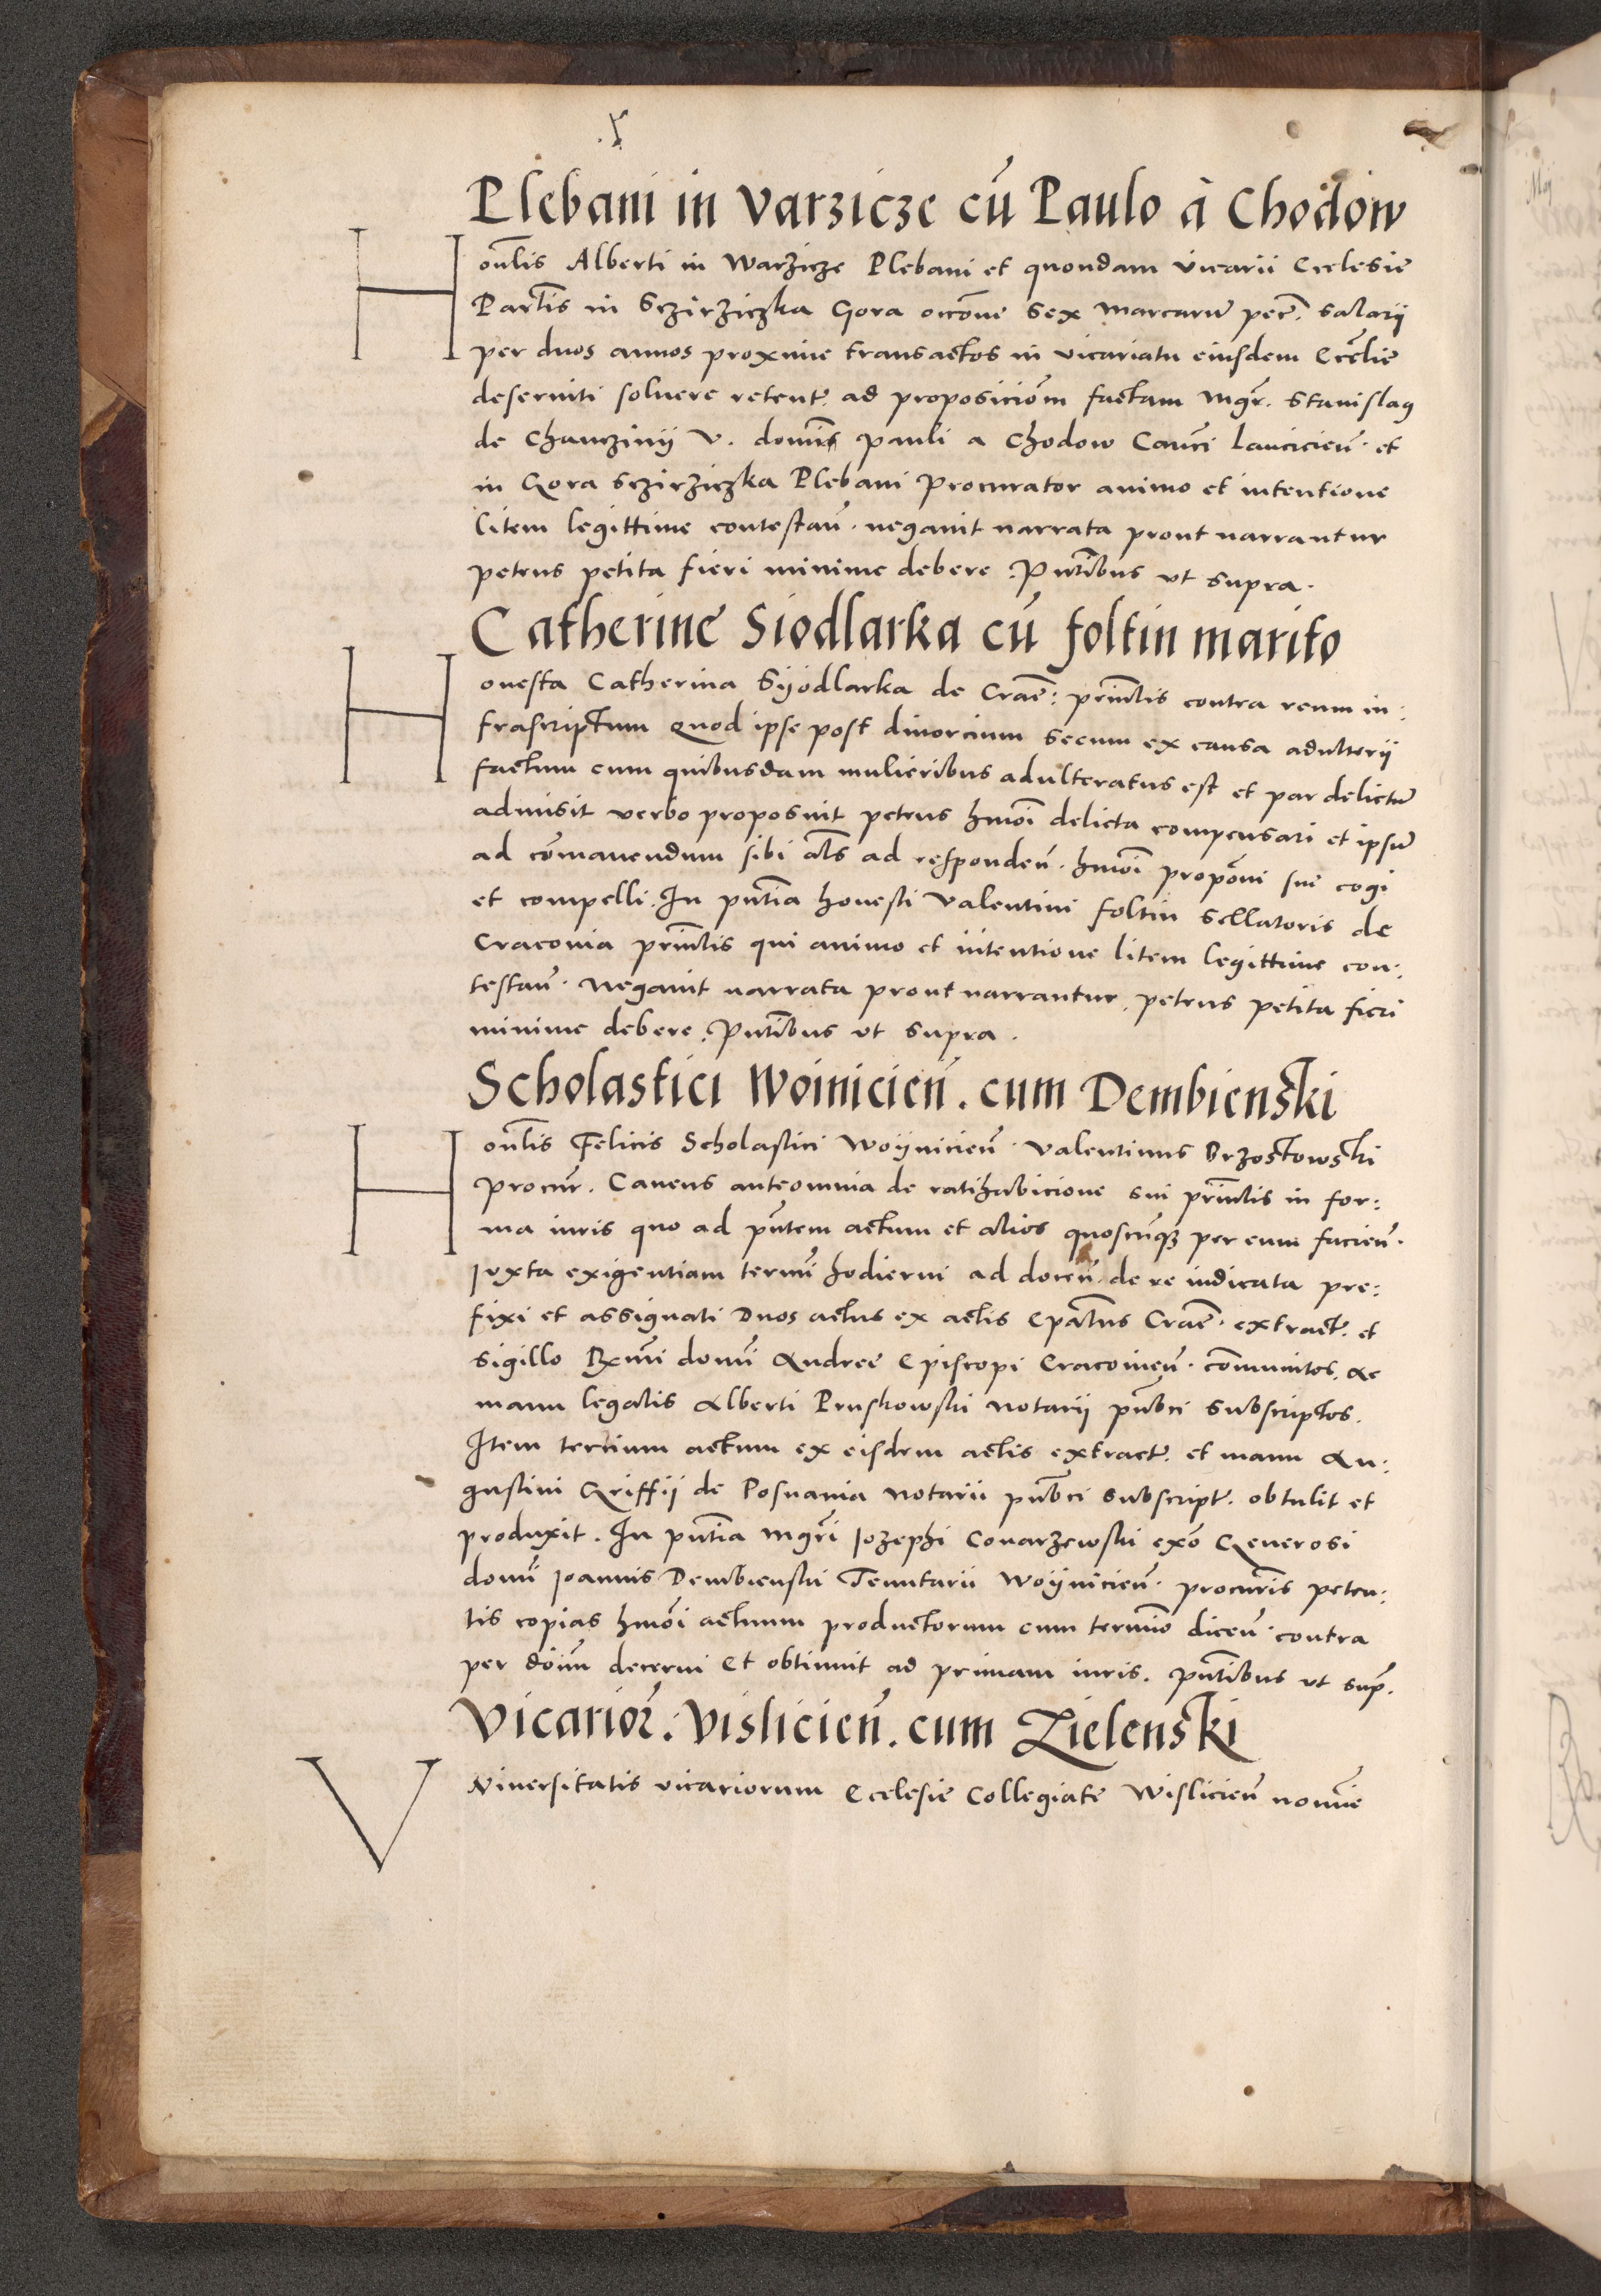 Plebani in Varzicze cū Paulo à Chodow
Honlīs Alberti in Warzicze Plebani et quondam vicarii Ecclesie
Partlīs in Sczirziczka Gora occōne sex marcarū pec̄. salarij
per duos annos proxime transactos in vicariatu eiusdem Eccl̄ie
deserviti solvere retent. ad proposiciōm factam mgr̄. Stanislaq
de Chanczinij v. domīs pauli a Chodow Canc̄i lancicien̄. et
in Gora Sczirziczka Plebani Procurator animo et intentione
litem legittime contestan̄. negavit narrata prout narrantur
petens petita fieri minime debere. Pntībus ut supra.
Catherine Siodlarka cū foltin marito
Honesta Catherina Syodlarka de Crac̄: prinlīs contra reum in:
frascriptum Quod ipse post divorcium secum ex causa adulterij
factum cum quibusdam mulieribus adulteratus est et par delictū
admisit verbo proposuit petens hmōi delicta compensari et ipsū
ad cōmanendum sibi als ad responden̄. hmōi propōni sue cogi
et compelli. In pntīa honesti Valentini foltin sellatoris de
Craconia prinlīs qui animo et intentione litem legittime con:
testan̄. Negavit narrata prout narrantur, petens petita fieri
minime debere. Pntībus ut supra.
Scholastici Woinicien̄. cum Dembienski
Honlīs Felicis Scholastici Woijnicien̄. Valentinus Brzostowski
procur̄. Cavens anteomnia de ratihabicione sui prinlīs in for:
ma iuris quo ad pn̄tem actum et alios quoscūnqz per eum facien̄.
Juxta exigentiam termī hodierni ad docen̄. de re iudicata pre:
fixi et assignati Duos actus ex actis Epatūs Crac̄. extract. et
sigillo Rxmī domī Andree Episcopi Cracovien̄. cōmunitos. ac
manu legalis Alberti Pruskowski notarij pub̄ci subscriptos.
Item tercium actum ex eisdem actis extract. et manu Au:
gustini Griffij de Posnania notarii pub̄ci subscript. obtulit et
produxit. In pntīa mgr̄i Jozephi Conarzewski exō Generosi
domī Joannis Dembienski Tenutarii Woijnicien̄. procurīs peten:
tis copias hmōi actuum productorum cum termīo dicen̄. contra
per dōim̄ decerni Et obtinuit ad primam iuris. Pntībus ut sup̄.
Vicarior̄. Vislicien̄. cum Zielenski
VNiversitatis vicariorum Ecclesie Collegiate Wislicien̄ nomīe